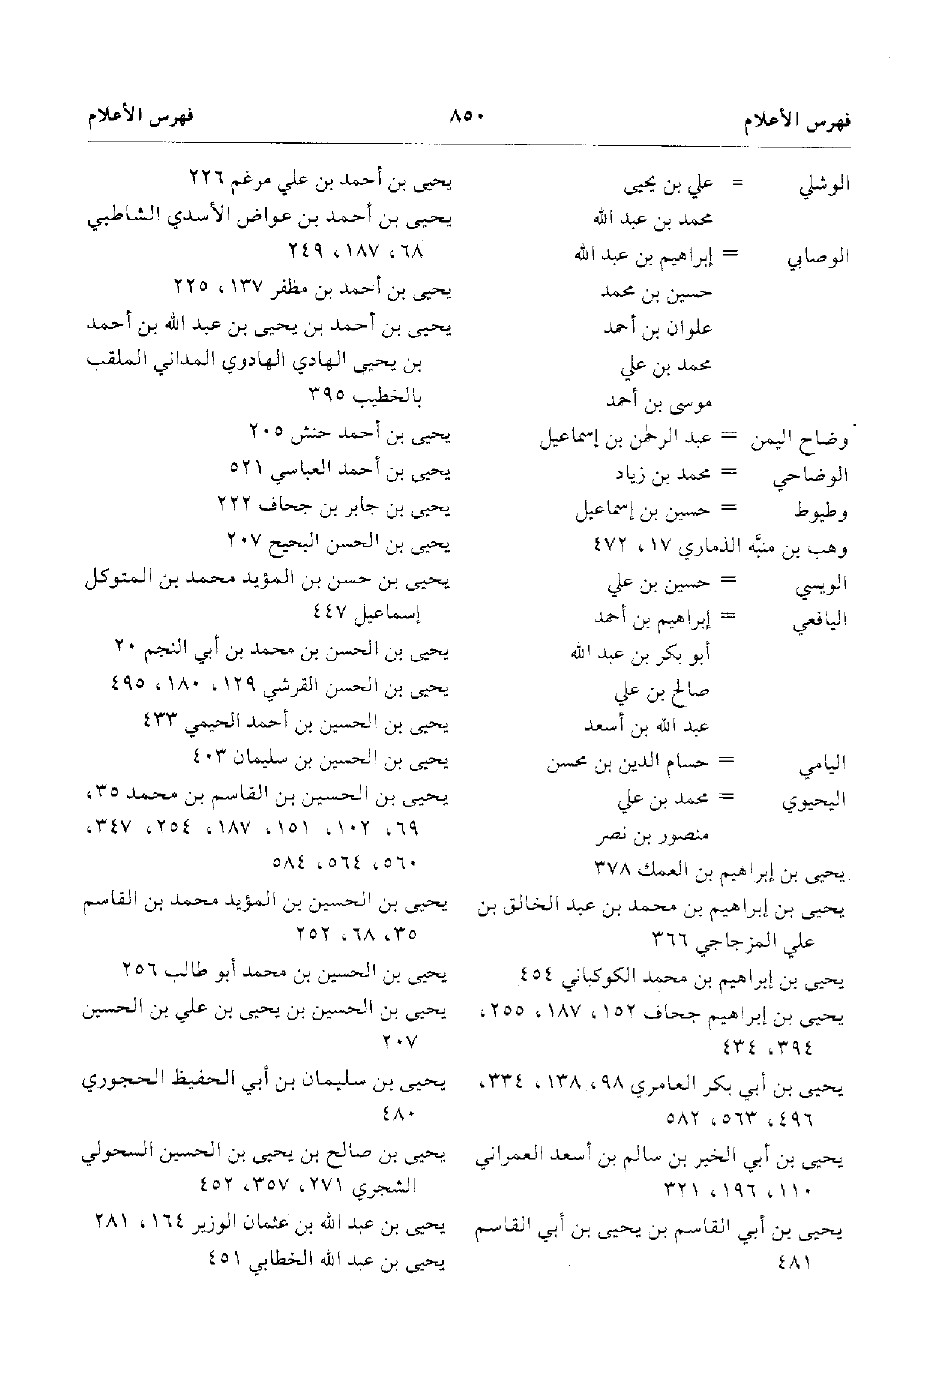 فهرس الأعلام ٨٥٠ فهرس الأعلام
الوشلي = علي بن يحيى
محمد بن عبد الله
الوصابي = إبراهيم بن عبد الله
حسين بن محمد
علوان بن أحمد
محمد بن علي
موسى بن أحمد
وضاح اليمن = عبد الرحمٰن بن إسماعيل
الوضاحي = محمد بن زياد
وطيوط = حسين بن إسماعيل
وهب بن منبَّه الذماري ١٧، ٤٧٢
الويسي = حسين بن علي
اليافعي = إبراهيم بن أحمد
أبو بكر بن عبد الله
صالح بن علي
عبد الله بن أسعد
اليامي = حسام الدين بن محسن
اليحيوي = محمد بن علي
منصور بن نصر
يحيى بن إبراهيم بن العمك ٣٧٨
يحيى بن إبراهيم بن محمد بن عبد الخالق بن
علي المزجاجي ٣٦٦
يحيى بن إبراهيم بن محمد الكوكباني ٤٥٤
يحيى بن إبراهيم جحاف ١٥٢، ١٨٧، ٢٥٥،
٣٩٤، ٤٣٤
يحيى بن أبي بكر العامري ٩٨، ١٣٨، ٣٣٤،
٤٩٦، ٥٦٣، ٥٨٢
يحيى بن أبي الخير بن سالم بن أسعد العمراني
١١٠، ١٩٦، ٣٢١
يحيى بن أبي القاسم بن يحيى بن أبي القاسم
٤٨١
يحيى بن أحمد بن علي مرغم ٢٢٦
يحيى بن أحمد بن عواض الأسدي الشاطبي
٦٨، ١٨٧، ٢٤٩
يحيى بن أحمد بن مظفر ١٣٧، ٢٢٥
يحيى بن أحمد بن يحيى بن عبد الله بن أحمد
بن يحيى الهادي الهادوي المداني الملقب
بالخطيب ٣٩٥
يحيى بن أحمد حنش ٢٠٥
يحيى بن أحمد العباسي ٥٢١
يحيى بن جابر بن جحاف ٢٢٢
يحيى بن الحسن البحيح ٢٠٧
يحيى بن حسن بن المؤيد محمد بن المتوكل
إسماعيل ٤٤٧
يحيى بن الحسن بن محمد بن أبي النجم ٢٠
يحيى بن الحسن القرشي ١٢٩، ١٨٠، ٤٩٥
يحيى بن الحسين بن أحمد الحيمي ٤٣٣
يحيى بن الحسين بن سليمان ٤٠٣
يحيى بن الحسين بن القاسم بن محمد ٣٥،
٦٩، ١٠٢، ١٥١، ١٨٧، ٢٥٤، ٣٤٧،
٥٦٠، ٥٦٤، ٥٨٤
يحيى بن الحسين بن المؤيد محمد بن القاسم
٣٥، ٦٨، ٢٥٢
يحيى بن الحسين بن محمد أبو طالب ٢٥٦
يحيى بن الحسين بن يحيى بن علي بن الحسين
٢٠٧
يحيى بن سليمان بن أبي الحفيظ الحجوري
٤٨٠
يحيى بن صالح بن يحيى بن الحسين السحولي
الشجري ٢٧١، ٣٥٧، ٤٥٢
يحيى بن عبد الله بن عثمان الوزير ١٦٤، ٢٨١
يحيى بن عبد الله الخطابي ٤٥١